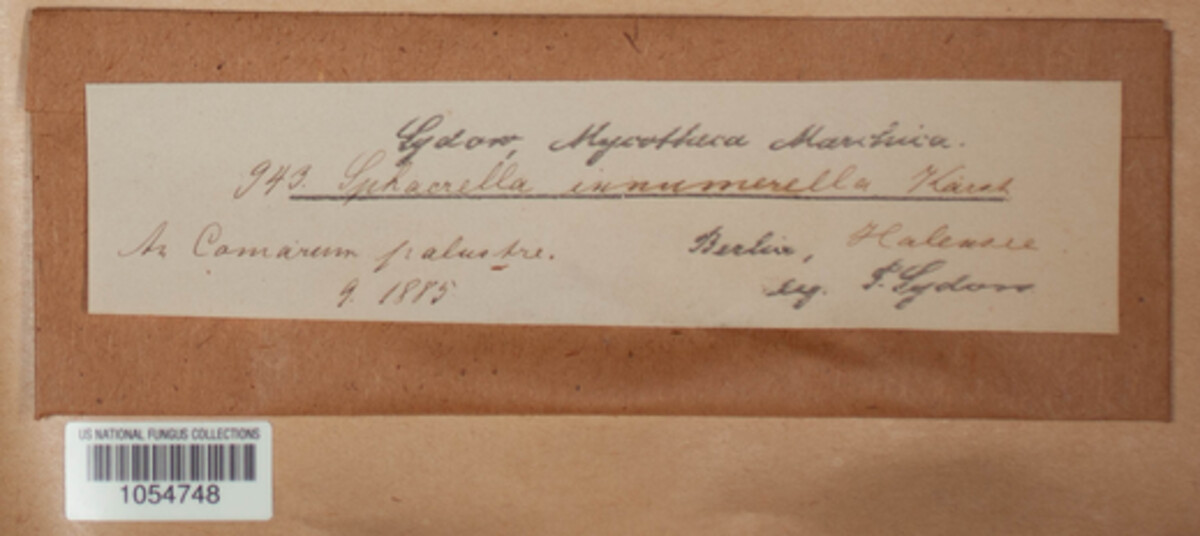 Sydow, Mycotheca Marchica.
943. Sphaerella innumerella Karst
An Comarum palustre. Berlin, Halensee
9. 1885 leg. P. Sydow
US NATIONAL FUNGUS COLLECTIONS
1054748